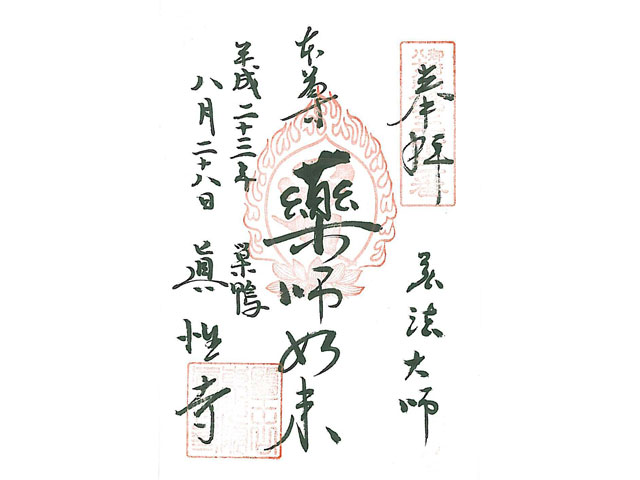 奉拝
弘法大師
本尊
藥師如来
平成二十三年
八月二十八日
巣鴨
眞性寺